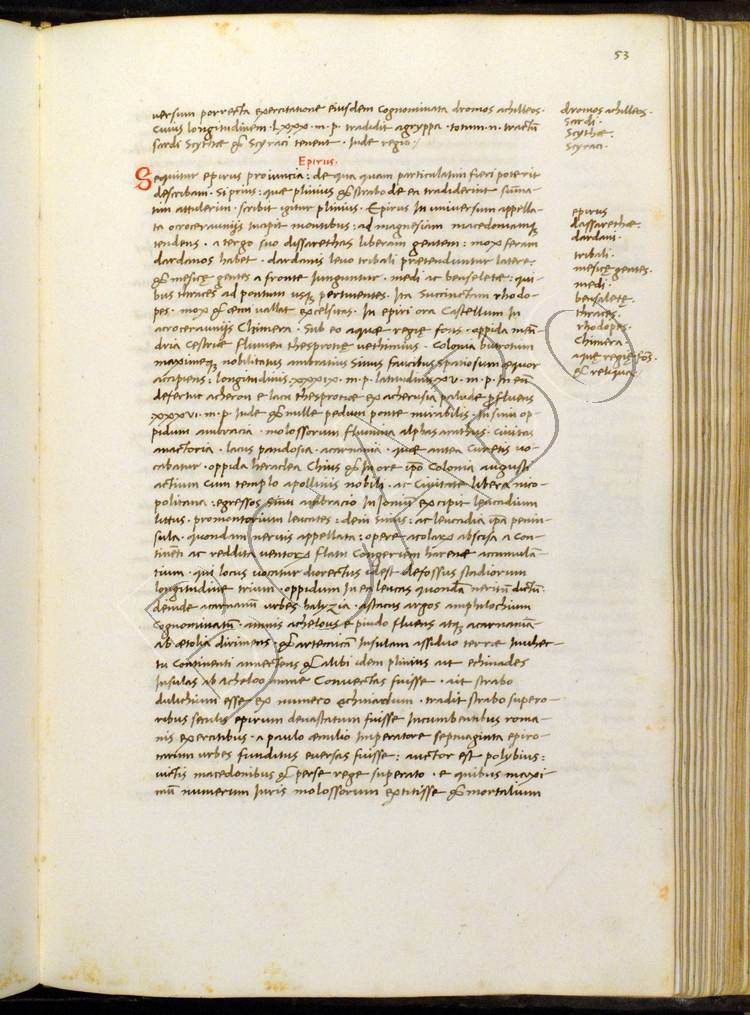 53
versum porrecta exercitatione eiusdem cognominata dromos achilleos.
Cuius longitudinem .LXXX. m.p. tradidit agryppa. totum .n. tractū
sardi Scythæ & Scyraci tenent. Inde regio:
Epirus.
Sequitur epirus provincia: de qua quam particulatim fieri poterit
describam. Si prius: quæ plinius & strabo de ea tradiderint summa-
tim attulerim. scribit igitur plinius. Epirus In universum appella-
ta ocroceraunijs Incipit montibus: ad magnesiam macedoniamqꝫ
tendens. a tergo suo dassarethas liberam gentem: mox feram
dardanos habet. dardanis levo tribali prætenduntur latere.
& mesicę gentes a fronte Iunguntur. medi ac benseletæ: qui-
bus thraces ad pontum usqꝫ pertinentes. Ita succinctam rhodo-
pes. mox & œmi vallat excelsitas. In epiri ora Castellum In
acroceraunijs Chimera. Sub eo aquæ regię fons. oppida mæn-
dria Cestriæ flumen thesprotię vethimius. Colonia butrotum
maximeqꝫ nobilitatus ambratius Sinus faucibus spatiosum æquor
accipiens: longitudinis .xxxix. m.p. latitudinis .xv. m.p. In eū
defertur acheron e lacu thesprotiæ ex acherusia palude profluens
xxxvi. m.p. Inde & mille pedum ponte mirabilis. In sinu op-
pidum ambracia. molossorum flumina alphas arathus. Civitas
anactoria. lacus pandosia. acarnania. quæ antea Curetis vo-
cabatur. oppida heraclea Chius & In ore ipō Colonia augusti
actium cum templo apollinis nobili. ac Civitate libera nico-
politana: egressos sinū ambracio In Ionium excipit leucadium
littus. promontorium leucates: dein sinus: ac leucadia ipa penin-
sula. quondam neritis appellata: opere acolarū abscisa a con-
tinēti ac reddita ventorū flatu congeriem harenæ accumulā-
tium. qui locus vocatur diorectus idest defossus stadiorum
longitudine trium: oppidum In ea leucas quondā neritū dictū:
deinde acarnanū urbes halyzia. astacus argos amphilochium
cognominatū. amnis achelous e pindo fluens atqꝫ acarnaniā
ab ætolia dirimens. & artemitā Insulam assiduo terræ Invhec-
tu continenti annectens & alibi idem plinius ait echinades
Insulas ab acheloo amne convectas fuisse. ait strabo
dulichium esse ex numero echinardum. tradit strabo supero-
ribus seculis epirum devastatum fuisse Incumbentibus roma-
nis exercitibus. a paulo æmilio Imperatore septuaginta epiro-
tarum urbes funditus eversas fuisse: auctor est polybius:
victis macedonibus & perse rege superato. e quibus maxi-
mū numerum Iuris molossorum extitisse & mortalium
dromos achilleos.
Sardi.
Scythæ.
Scyraci.
epirus
dassarethæ.
dardani.
tribali.
mesicę gentes.
medi.
benseletę.
thraces.
rhodopes.
Chimera.
aquę regię fōs.
& reliqua